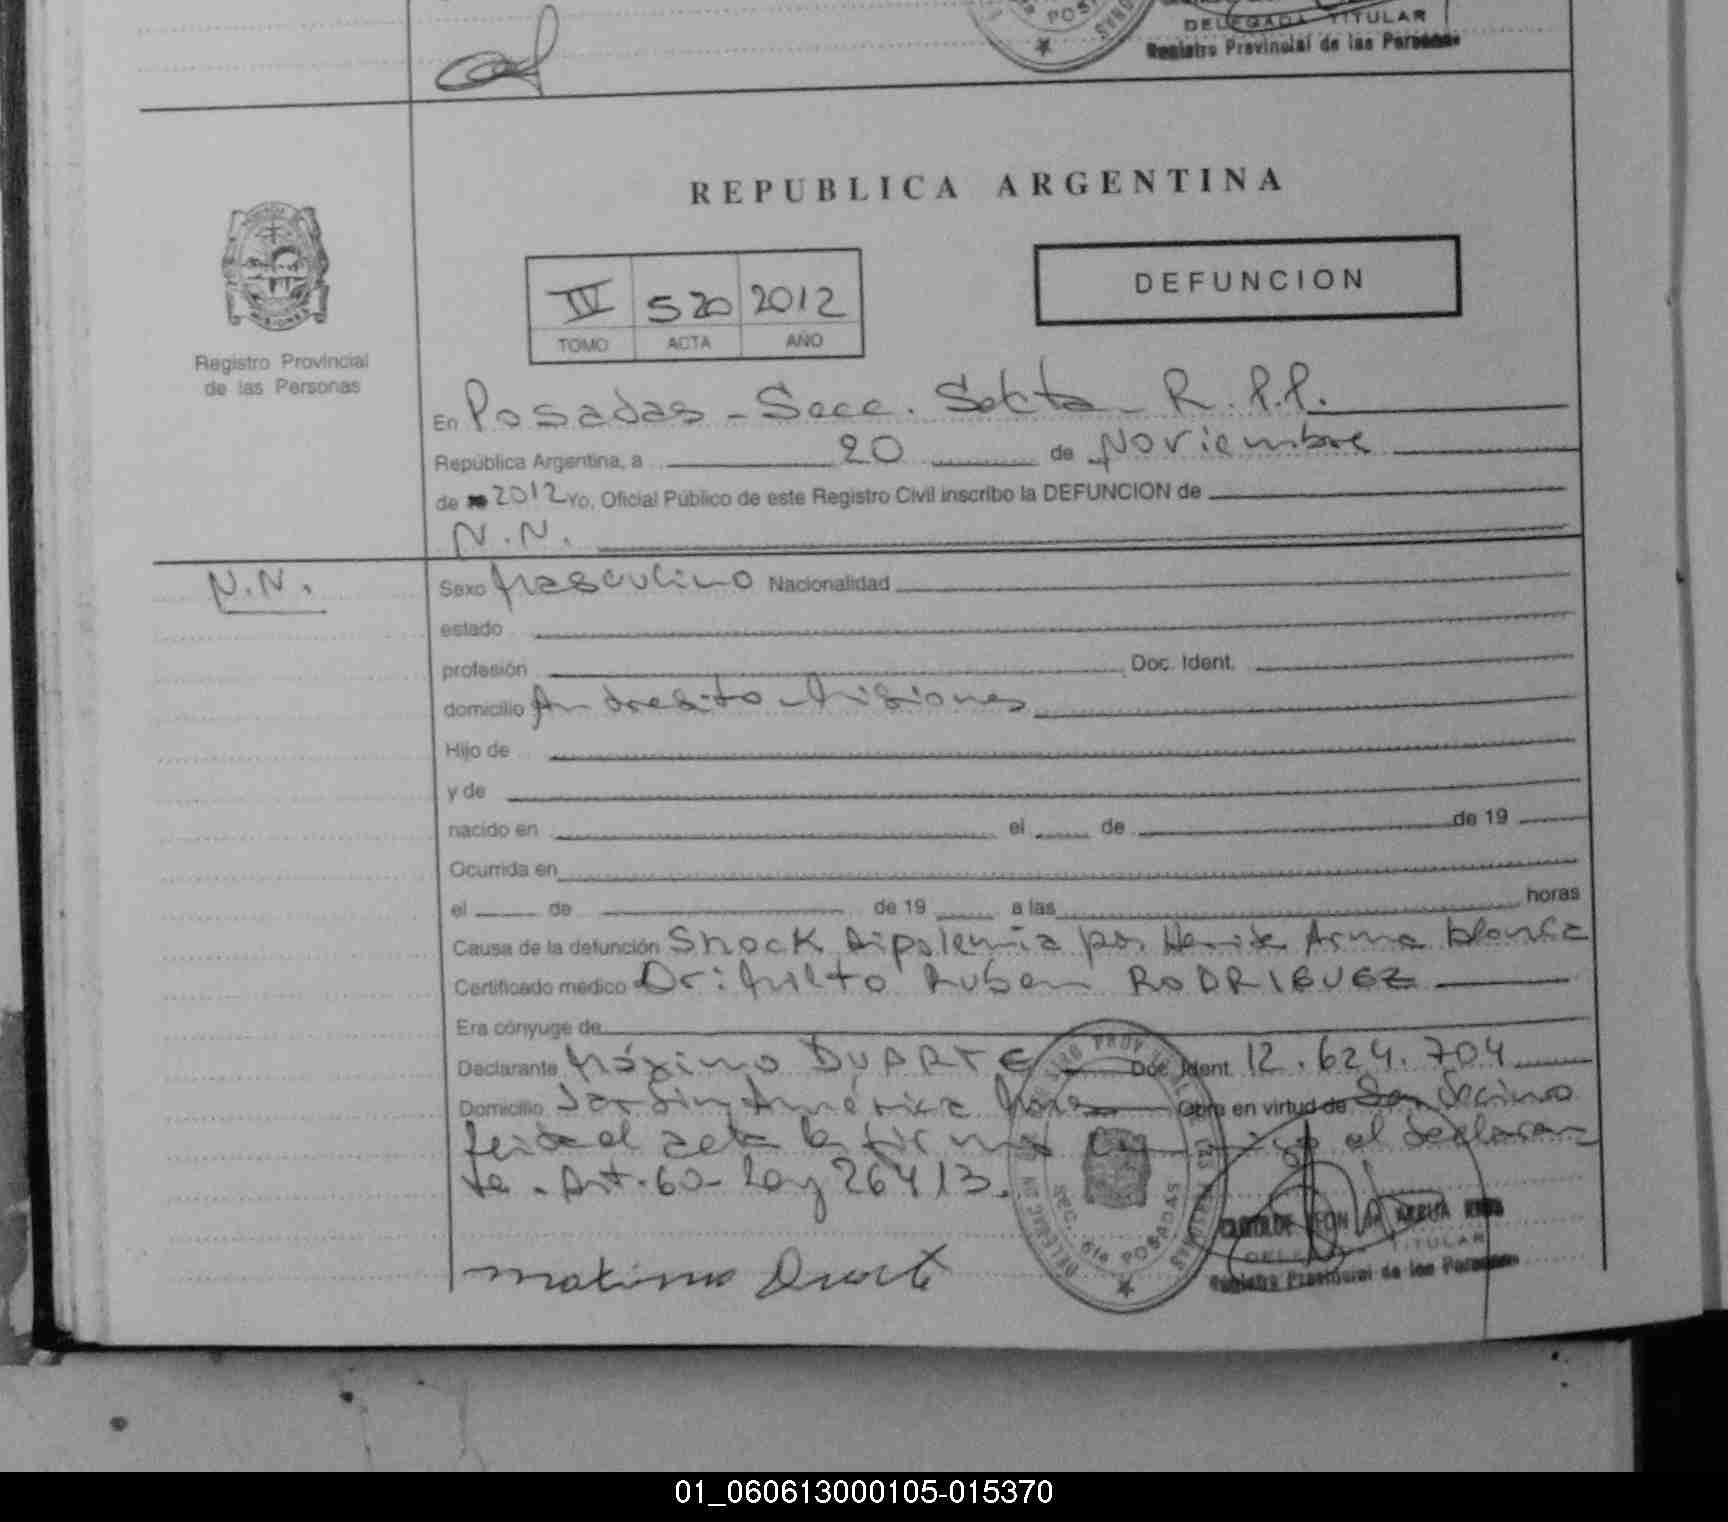 POSA
DELEGADA TITULAR
Registro Provincial de las Personas
REPUBLICA ARGENTINA
IV 520 2012
TOMO ACTA AÑO
DEFUNCION
Registro Provincial
de las Personas
En Posadas - Secc. Sexta - R.P.P.
República Argentina, a 20 de Noviembre
de 2012 Yo, Oficial Público de este Registro Civil inscribo la DEFUNCION de
N.N.
N.N.
Sexo Masculino Nacionalidad
estado
profesión Doc. Ident.
domicilio Andresito - Misiones
Hijo de
y de
nacido en el de de 19
Ocurrida en
el de de 19 a las horas
Causa de la defunción Shock Aipolemia por Herida Arma blanca
Certificado médico Dr: Milto Ruben RODRIGUEZ
Era cónyuge de
Declarante Máximo DUARTE Doc. Ident. 12.624.704
Domicilio Jardin América Mnes Obra en virtud de Ser Decimo
leida el acta la firma conmigo el declaran-
te. Art. 60 - Ley 26413.
SEC. 6ta POSADAS
DELEGADA TITULAR
Registro Provincial de las Personas
Maximo Duarte
01_060613000105-015370